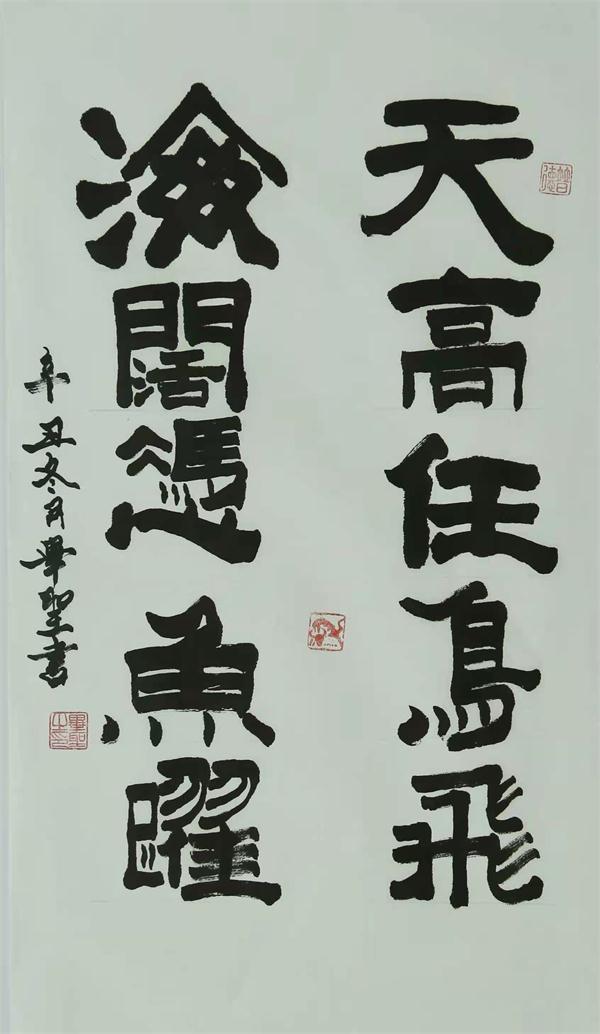 天高任鳥飛
海闊憑魚躍
辛丑冬月畢聖書
畢聖之印